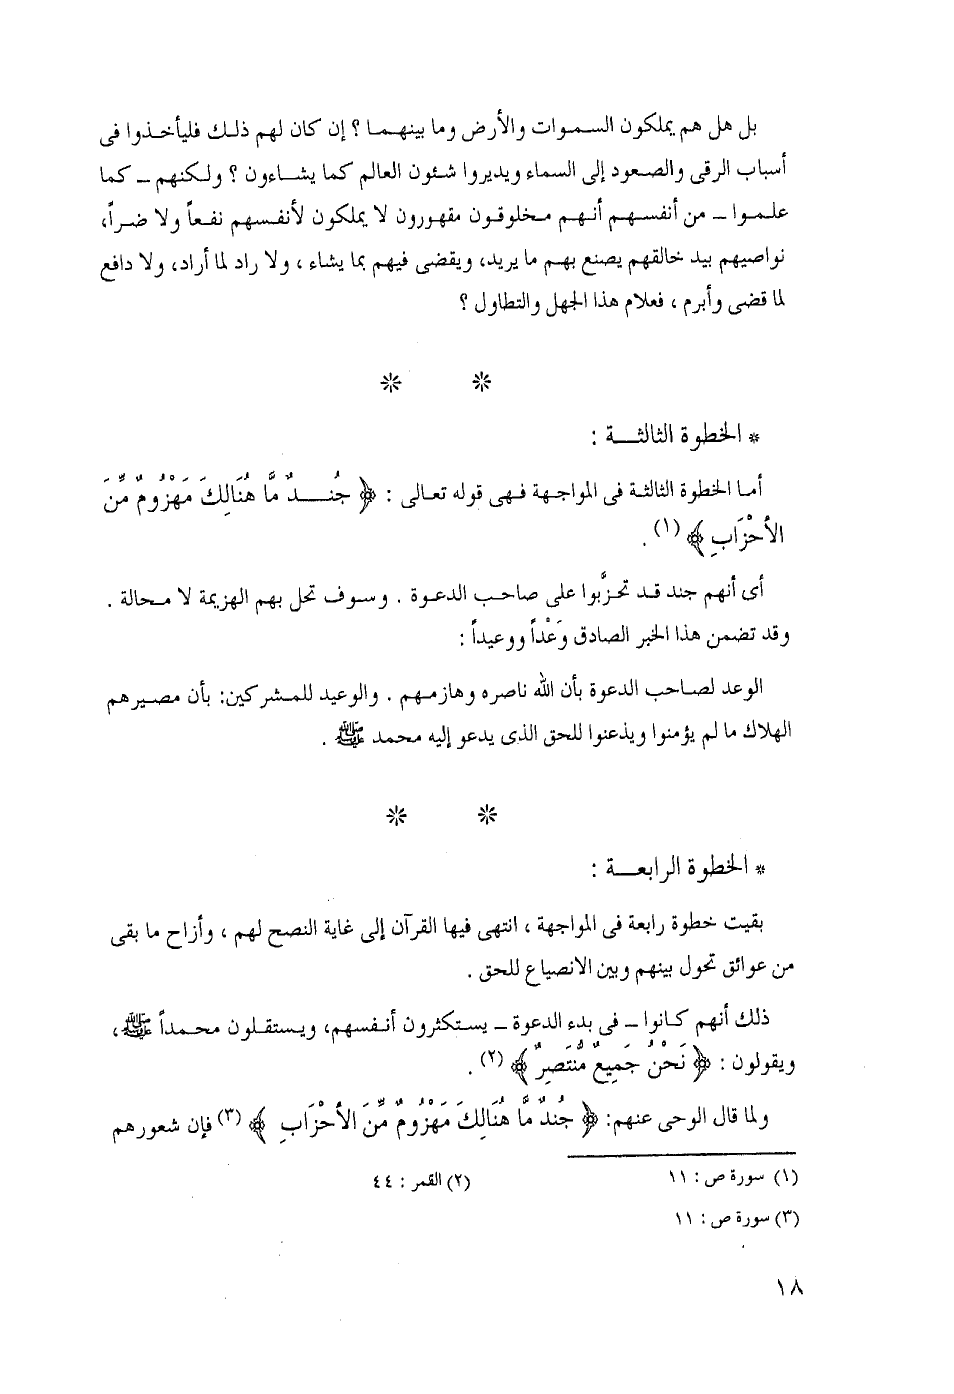 بل هل هم يملكون السموات والأرض وما بينهما ؟ إن كان لهم ذلك فليأخذوا فى
أسباب الرقى والصعود إلى السماء ويديروا شئون العالم كما يشاءون ؟ ولكنهم ـ كما
علموا ـ من أنفسهم أنهم مخلوقون مقهورون لا يملكون لأنفسهم نفعاً ولا ضراً،
نواصيهم بيد خالقهم يصنع بهم ما يريد، ويقضى فيهم بما يشاء ، ولا راد لما أراد، ولا دافع
لما قضى وأبرم ، فعلام هذا الجهل والتطاول ؟
* *
* الخطوة الثالثـــة :
أما الخطوة الثالثة فى المواجهة فهى قوله تعالى : ﴿ جُنـــدٌ مَّا هُنَالِكَ مَهْزُومٌ مِّنَ
الأَحْزَابِ ﴾ (١) .
أى أنهم جند قد تحزَّبوا على صاحب الدعوة . وسوف تحل بهم الهزيمة لا محالة .
وقد تضمن هذا الخبر الصادق وَعْداً ووعيداً :
الوعد لصاحب الدعوة بأن الله ناصره وهازمهم . والوعيد للمشركين: بأن مصيرهم
الهلاك ما لم يؤمنوا ويذعنوا للحق الذى يدعو إليه محمد ﷺ .
* *
* الخطوة الرابعـــة :
بقيت خطوة رابعة فى المواجهة ، انتهى فيها القرآن إلى غاية النصح لهم ، وأزاح ما بقى
من عوائق تحول بينهم وبين الانصياع للحق .
ذلك أنهم كانوا ـ فى بدء الدعوة ـ يستكثرون أنفسهم، ويستقلون محمداً ﷺ،
ويقولون : ﴿ نَحْنُ جَمِيعٌ مُّنتَصِرٌ ﴾ (٢) .
ولما قال الوحى عنهم: ﴿ جُندٌ مَّا هُنَالِكَ مَهْزُومٌ مِّنَ الأَحْزَابِ ﴾ (٣) فإن شعورهم
(١) سورة ص : ١١ (٢) القمر : ٤٤
(٣) سورة ص : ١١
١٨